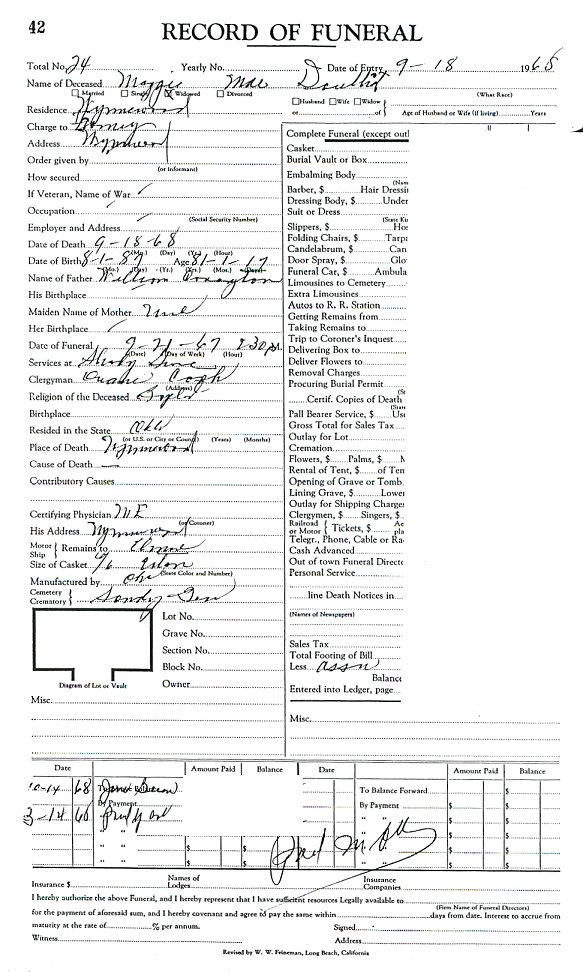 42
RECORD OF FUNERAL
Total No. 24 Yearly No. Date of Entry 9-18 1968
Name of Deceased Maggie Mae Douthit
Married Single Widowed Divorced
(What Race)
Residence Wynnewood
Husband Wife Widow
or of Age of Husband or Wife (if living) Years
Charge to
Address Wynnewood
Order given by
(or Informant)
How secured
If Veteran, Name of War
Occupation
(Social Security Number)
Employer and Address
Date of Death 9-18-68
(Mo.) (Day) (Yr.) (Hour)
Date of Birth 8-1-87 Age 81-1-17
(Mo.) (Day) (Yr.) (Yrs.) (Mos.) (Days)
Name of Father William
His Birthplace
Maiden Name of Mother
Her Birthplace
Date of Funeral 9-21-67 2:30 pm
(Date) (Day of Week) (Hour)
Services at
Clergyman Duane
(Address)
Religion of the Deceased
Birthplace
Resided in the State Okla
(or U.S. or City or County) (Years) (Months)
Place of Death Wynnewood
Cause of Death
Contributory Causes
Certifying Physician ME
(or Coroner)
His Address Wynnewood
Motor Ship Remains to
Size of Casket
(State Color and Number)
Manufactured by
Cemetery Crematory
Lot No.
Grave No.
Section No.
Block No.
Owner
Diagram of Lot or Vault
Misc.
Complete Funeral (except outl
Casket
Burial Vault or Box
Embalming Body
(Nam
Barber, $ Hair Dressi
Dressing Body, $ Under
Suit or Dress
(State Ki
Slippers, $ Ho
Folding Chairs, $ Tarp
Candelabrum, $ Can
Door Spray, $ Glo
Funeral Car, $ Ambula
Limousines to Cemetery
Extra Limousines
Autos to R. R. Station
Getting Remains from
Taking Remains to
Trip to Coroner's Inquest
Delivering Box to
Deliver Flowers to
Removal Charges
Procuring Burial Permit
(St
Certif. Copies of Death
(State
Pall Bearer Service, $ Us
Gross Total for Sales Tax
Outlay for Lot
Cremation
Flowers, $ Palms, $ M
Rental of Tent, $ of Ten
Opening of Grave or Tomb
Lining Grave, $ Lower
Outlay for Shipping Charge
Clergymen, $ Singers, $
Railroad or Motor Tickets, $ Ac pla
Telegr., Phone, Cable or Ra
Cash Advanced
Out of town Funeral Directo
Personal Service
line Death Notices in
(Names of Newspapers)
Sales Tax
Total Footing of Bill
Less assn
Balance
Entered into Ledger, page
Misc.
Date Amount Paid Balance Date Amount Paid Balance
10-14 68 To Balance Forward $
By Payment By Payment $
" " " " $
" " $ $ " " $ $
" " $ $ " " $ $
Insurance $ Names of Lodges Insurance Companies
I hereby authorize the above Funeral, and I hereby represent that I have sufficient resources Legally available to
(Firm Name of Funeral Directors)
for the payment of aforesaid sum, and I hereby covenant and agree to pay the same within days from date. Interest to accrue from
maturity at the rate of % per annum. Signed
Witness Address
Revised by W. W. Feineman, Long Beach, California